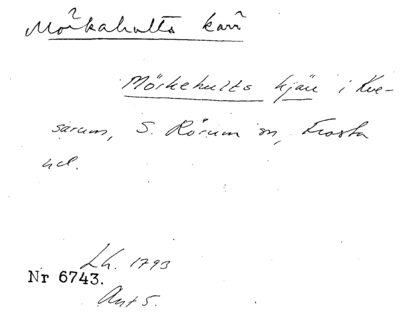 Mörkahults kärr
Mörkehults kjärr i Kve-
sarum, S. Rörum sn, Frosta
hd.
Lh. 1793
Nr 6743.
Akt 5.